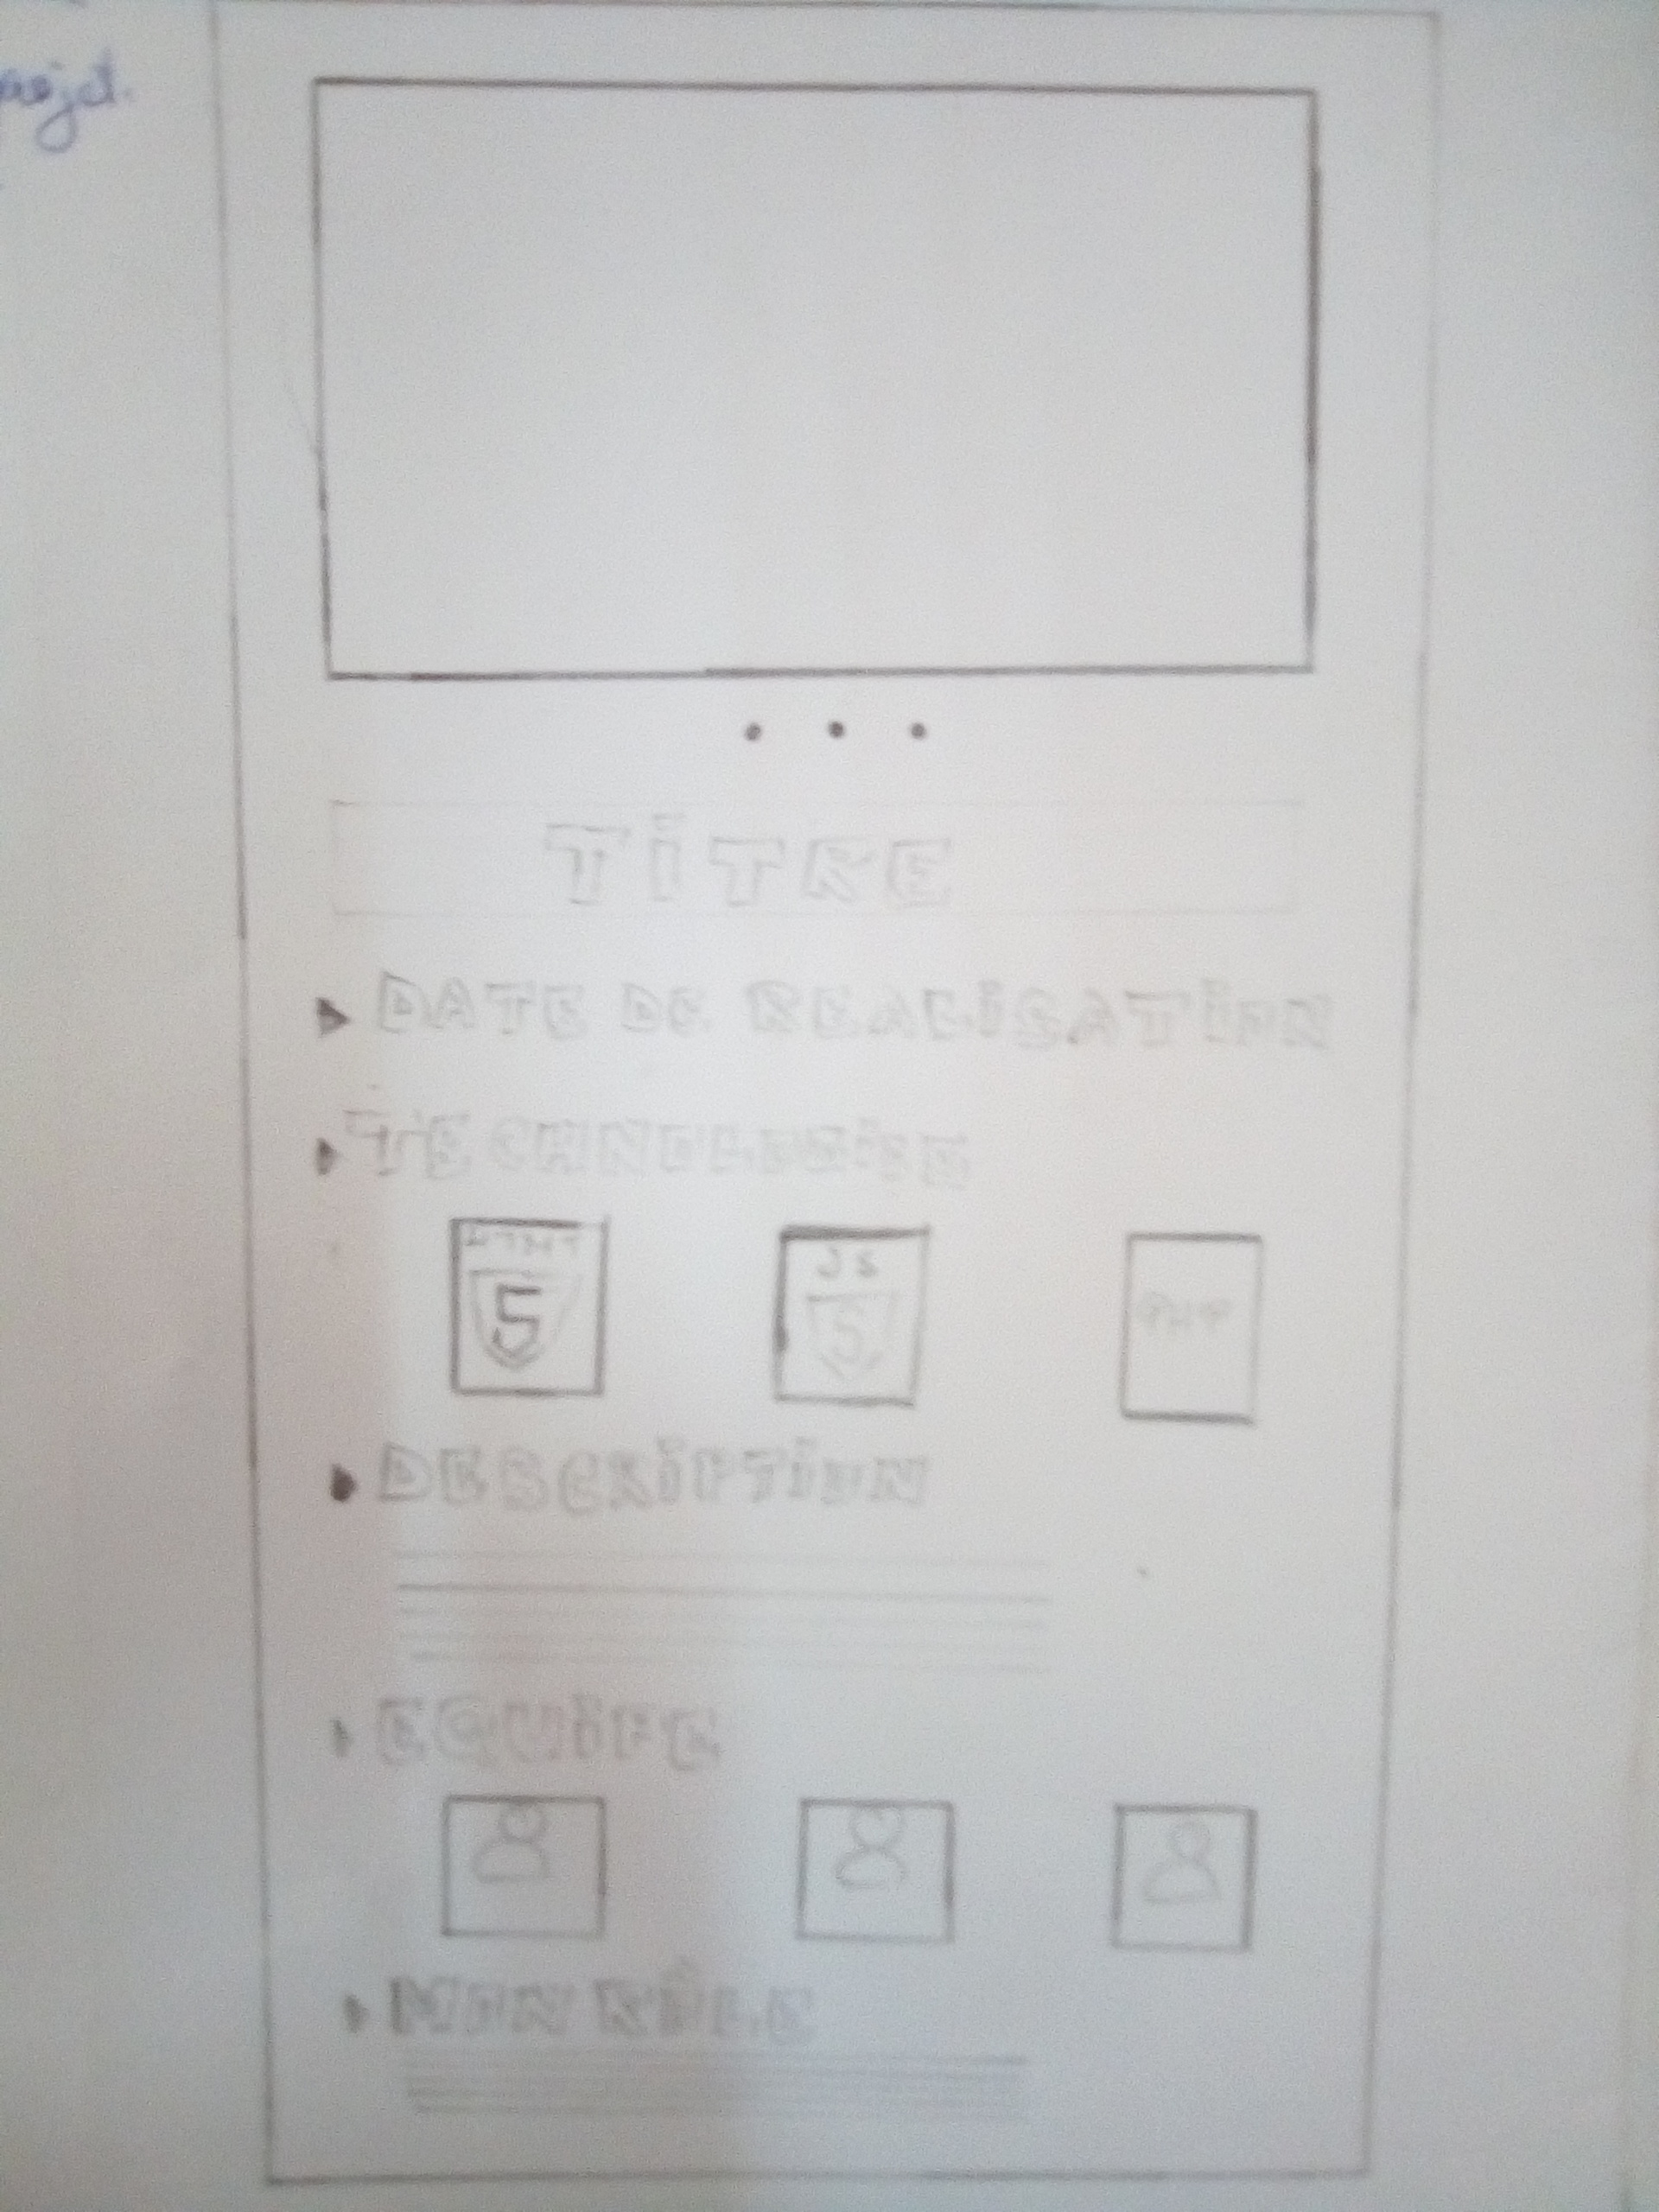 projet.
TITRE
DATE DE REALISATION
TECHNOLOGIE
HTML
5
JS
5
PHP
DESCRIPTION
EQUIPE
MON RÔLE